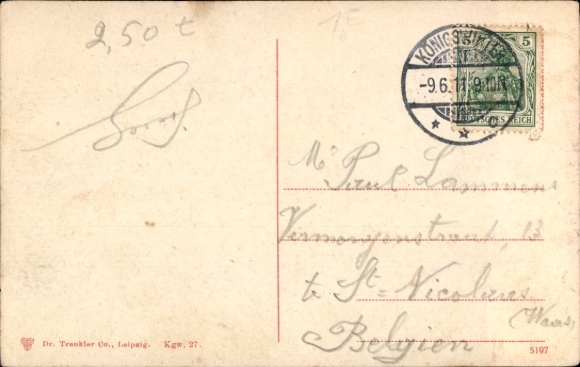 2,50 t
1F
KÖNIGSWINTER
-9.6.11. 9-10N
* * c
5
DEUTSCHES REICH
Mr Paul Lammens
13
te St= Nicolaas
(Waas)
Belgien
Dr. Trenkler Co., Leipzig. Kgw. 27.
5197